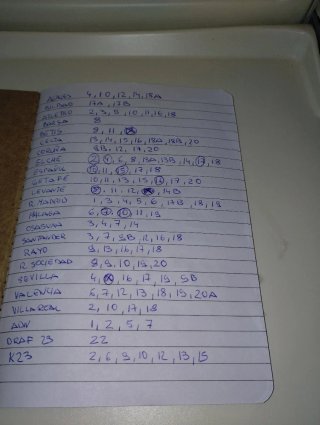 ALAVÉS 4, 10, 12, 14, 18A
BILBAO 17A, 17B
ATLETICO 2, 3, 5, 10, 11, 16, 18
BARSA 8
BETIS 9, 11,
CELTA 13, 14, 15, 16, 18A, 18B, 20
CORUÑA 9B, 12, 17, 20
ELCHE 2, 4, 6, 8, 13A, 13B, 14, 17, 18
ESPANYOL 11, 15, 17, 18
GETAFE 10, 11, 13, 15, 17, 20
LEVANTE 8, 11, 12, 14B
R. MADRID 1, 3, 4, 5, 6, 17B, 18, 19
MALAGA 6, 11, 19
OSASUNA 3, 4, 7, 14
SANTANDER 3, 7, 9B, 12, 16, 18
RAYO 9, 13, 16, 17, 18
R. SOCIEDAD 8, 9, 10, 19, 20
SEVILLA 4, 16, 17, 19, 9B
VALENCIA 6, 7, 12, 13, 18, 19, 20A
VILLAREAL 2, 10, 17, 18
ADN 1, 2, 5, 7
DRAF 23 22
K23 2, 6, 9, 10, 12, 13, 15